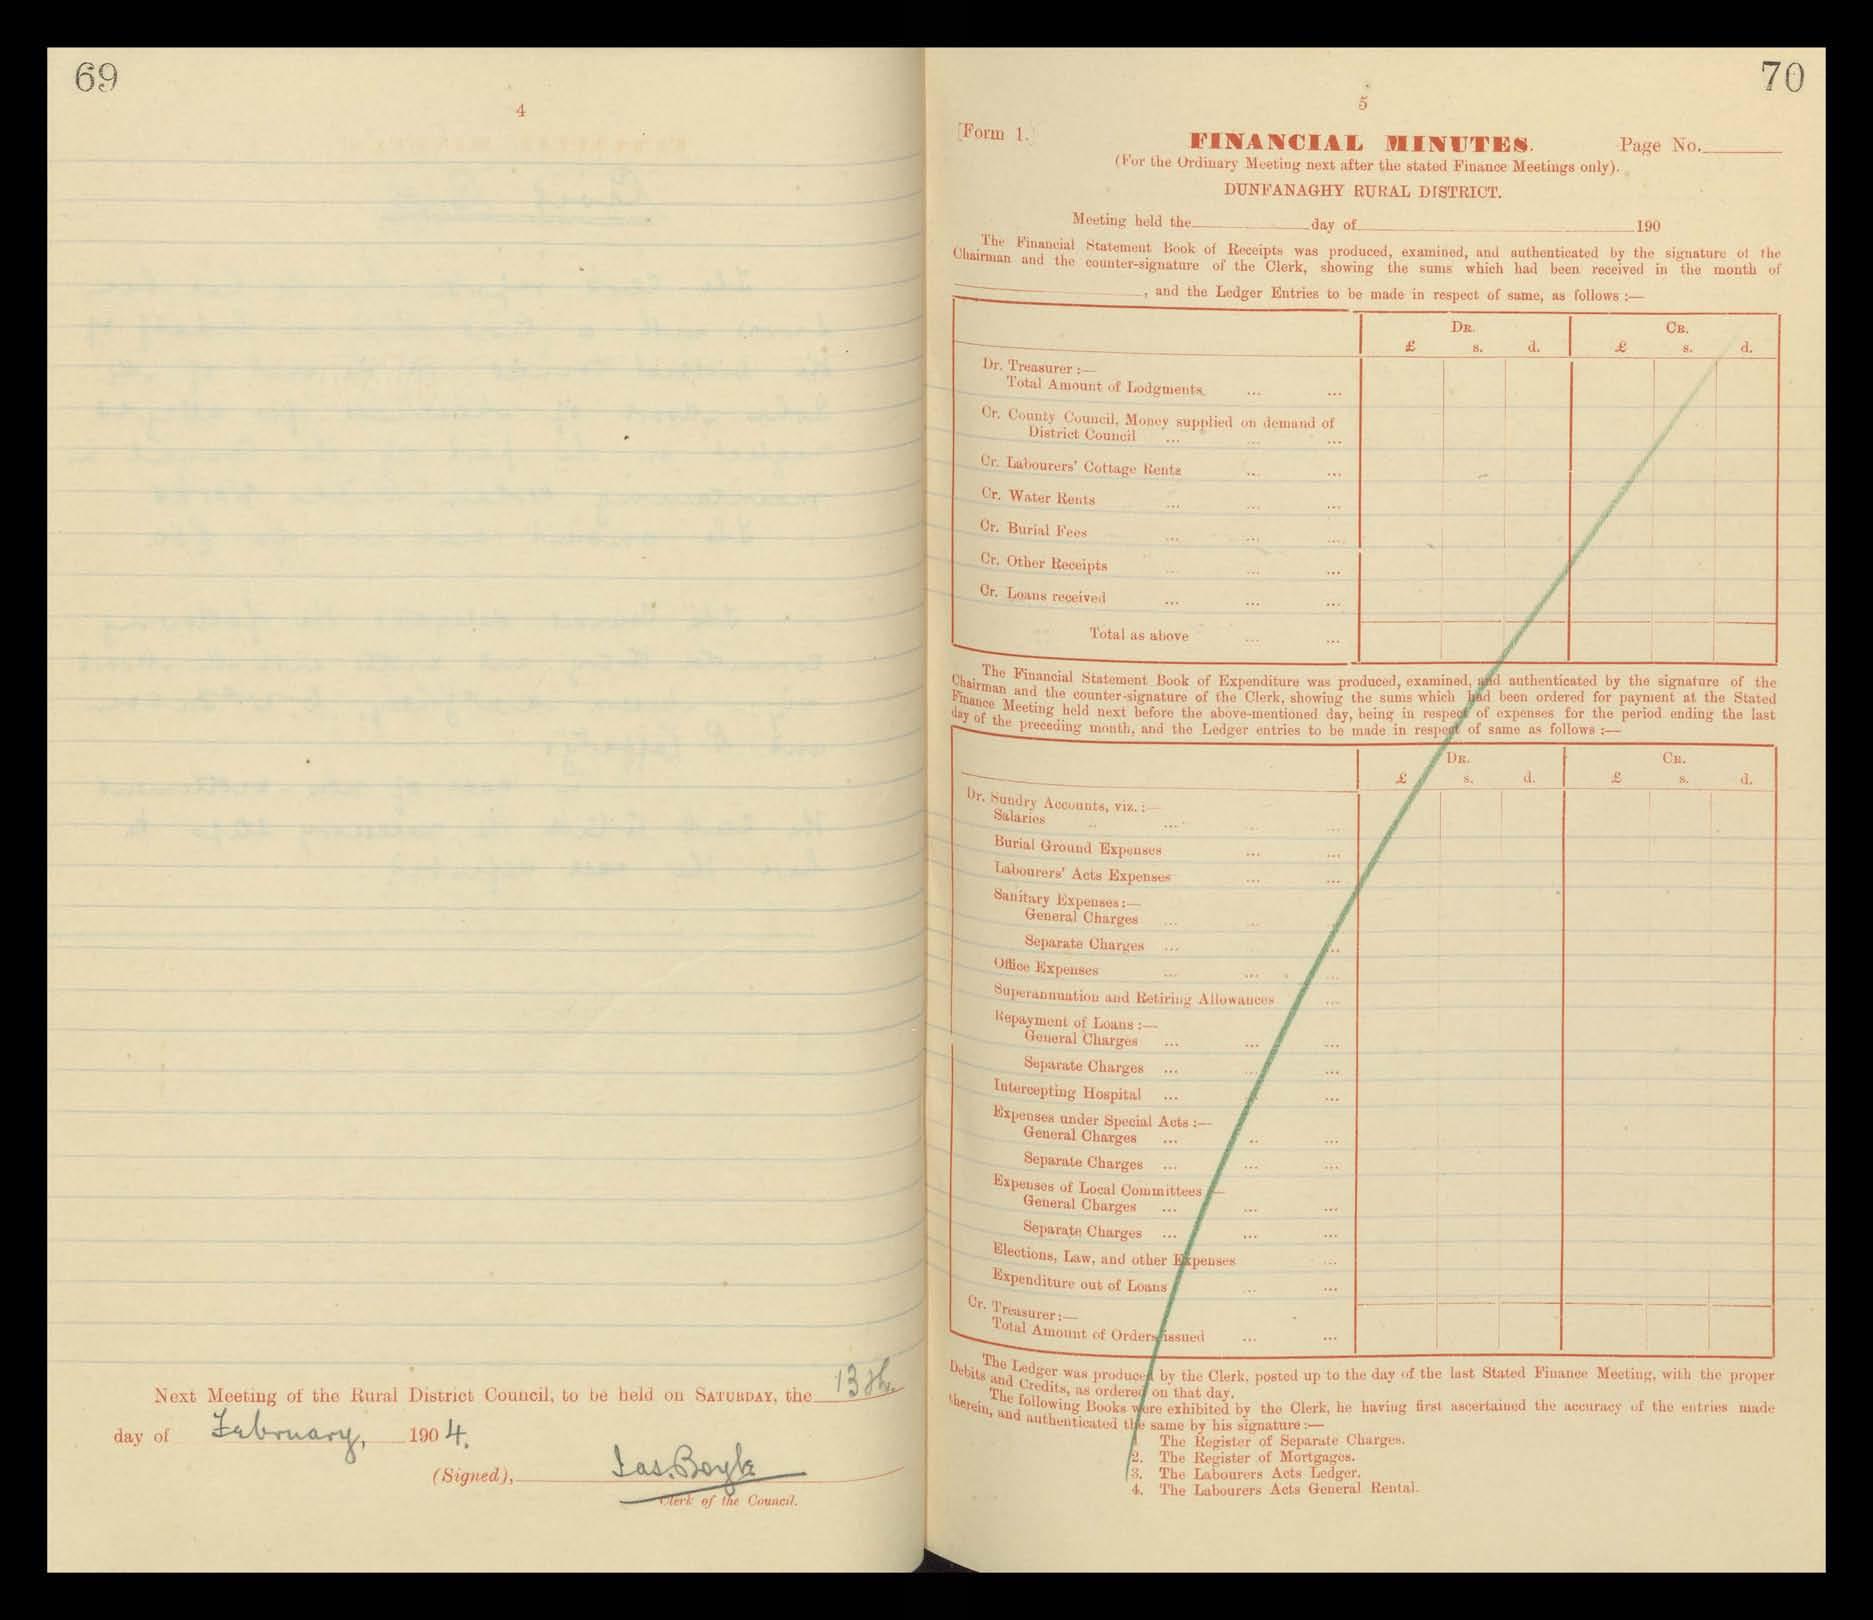 69
4
Next Meeting of the Rural District Council, to be held on SATURDAY, the 13th.
day of February, 1904.
(Signed), Jas. Boyle
Clerk of the Council.
70
5
[Form 1.]
FINANCIAL MINUTES.
Page No.
(For the Ordinary Meeting next after the stated Finance Meetings only).
DUNFANAGHY RURAL DISTRICT.
Meeting held the day of 190
The Financial Statement Book of Receipts was produced, examined, and authenticated by the signature of the
Chairman and the counter-signature of the Clerk, showing the sums which had been received in the month of
, and the Ledger Entries to be made in respect of same, as follows :—
DR. CR.
£ s. d. £ s. d.
Dr. Treasurer :—
Total Amount of Lodgments, ... ...
Cr. County Council, Money supplied on demand of
District Council ... ... ...
Cr. Labourers' Cottage Rents ... ...
Cr. Water Rents ... ... ...
Cr. Burial Fees ... ... ...
Cr. Other Receipts ... ... ...
Cr. Loans received ... ... ...
Total as above ... ...
The Financial Statement Book of Expenditure was produced, examined, and authenticated by the signature of the
Chairman and the counter-signature of the Clerk, showing the sums which had been ordered for payment at the Stated
Finance Meeting held next before the above-mentioned day, being in respect of expenses for the period ending the last
day of the preceding month, and the Ledger entries to be made in respect of same as follows :—
DR. CR.
£ s. d. £ s. d.
Dr. Sundry Accounts, viz. :—
Salaries .. ... ... ...
Burial Ground Expenses ... ...
Labourers' Acts Expenses ... ...
Sanitary Expenses :—
General Charges ... ... ...
Separate Charges ... ...
Office Expenses ... ... ...
Superannuation and Retiring Allowances ...
Repayment of Loans :—
General Charges ... ... ...
Separate Charges ... ... ...
Intercepting Hospital ... ...
Expenses under Special Acts :—
General Charges ... .. ...
Separate Charges ... ... ...
Expenses of Local Committees :—
General Charges ... ... ...
Separate Charges ... ... ...
Elections, Law, and other Expenses ...
Expenditure out of Loans ... ...
Cr. Treasurer :—
Total Amount of Orders issued ... ...
The Ledger was produced by the Clerk, posted up to the day of the last Stated Finance Meeting, with the proper
Debits and Credits, as ordered on that day.
The following Books were exhibited by the Clerk, he having first ascertained the accuracy of the entries made
therein, and authenticated the same by his signature :—
1. The Register of Separate Charges.
2. The Register of Mortgages.
3. The Labourers Acts Ledger.
4. The Labourers Acts General Rental.